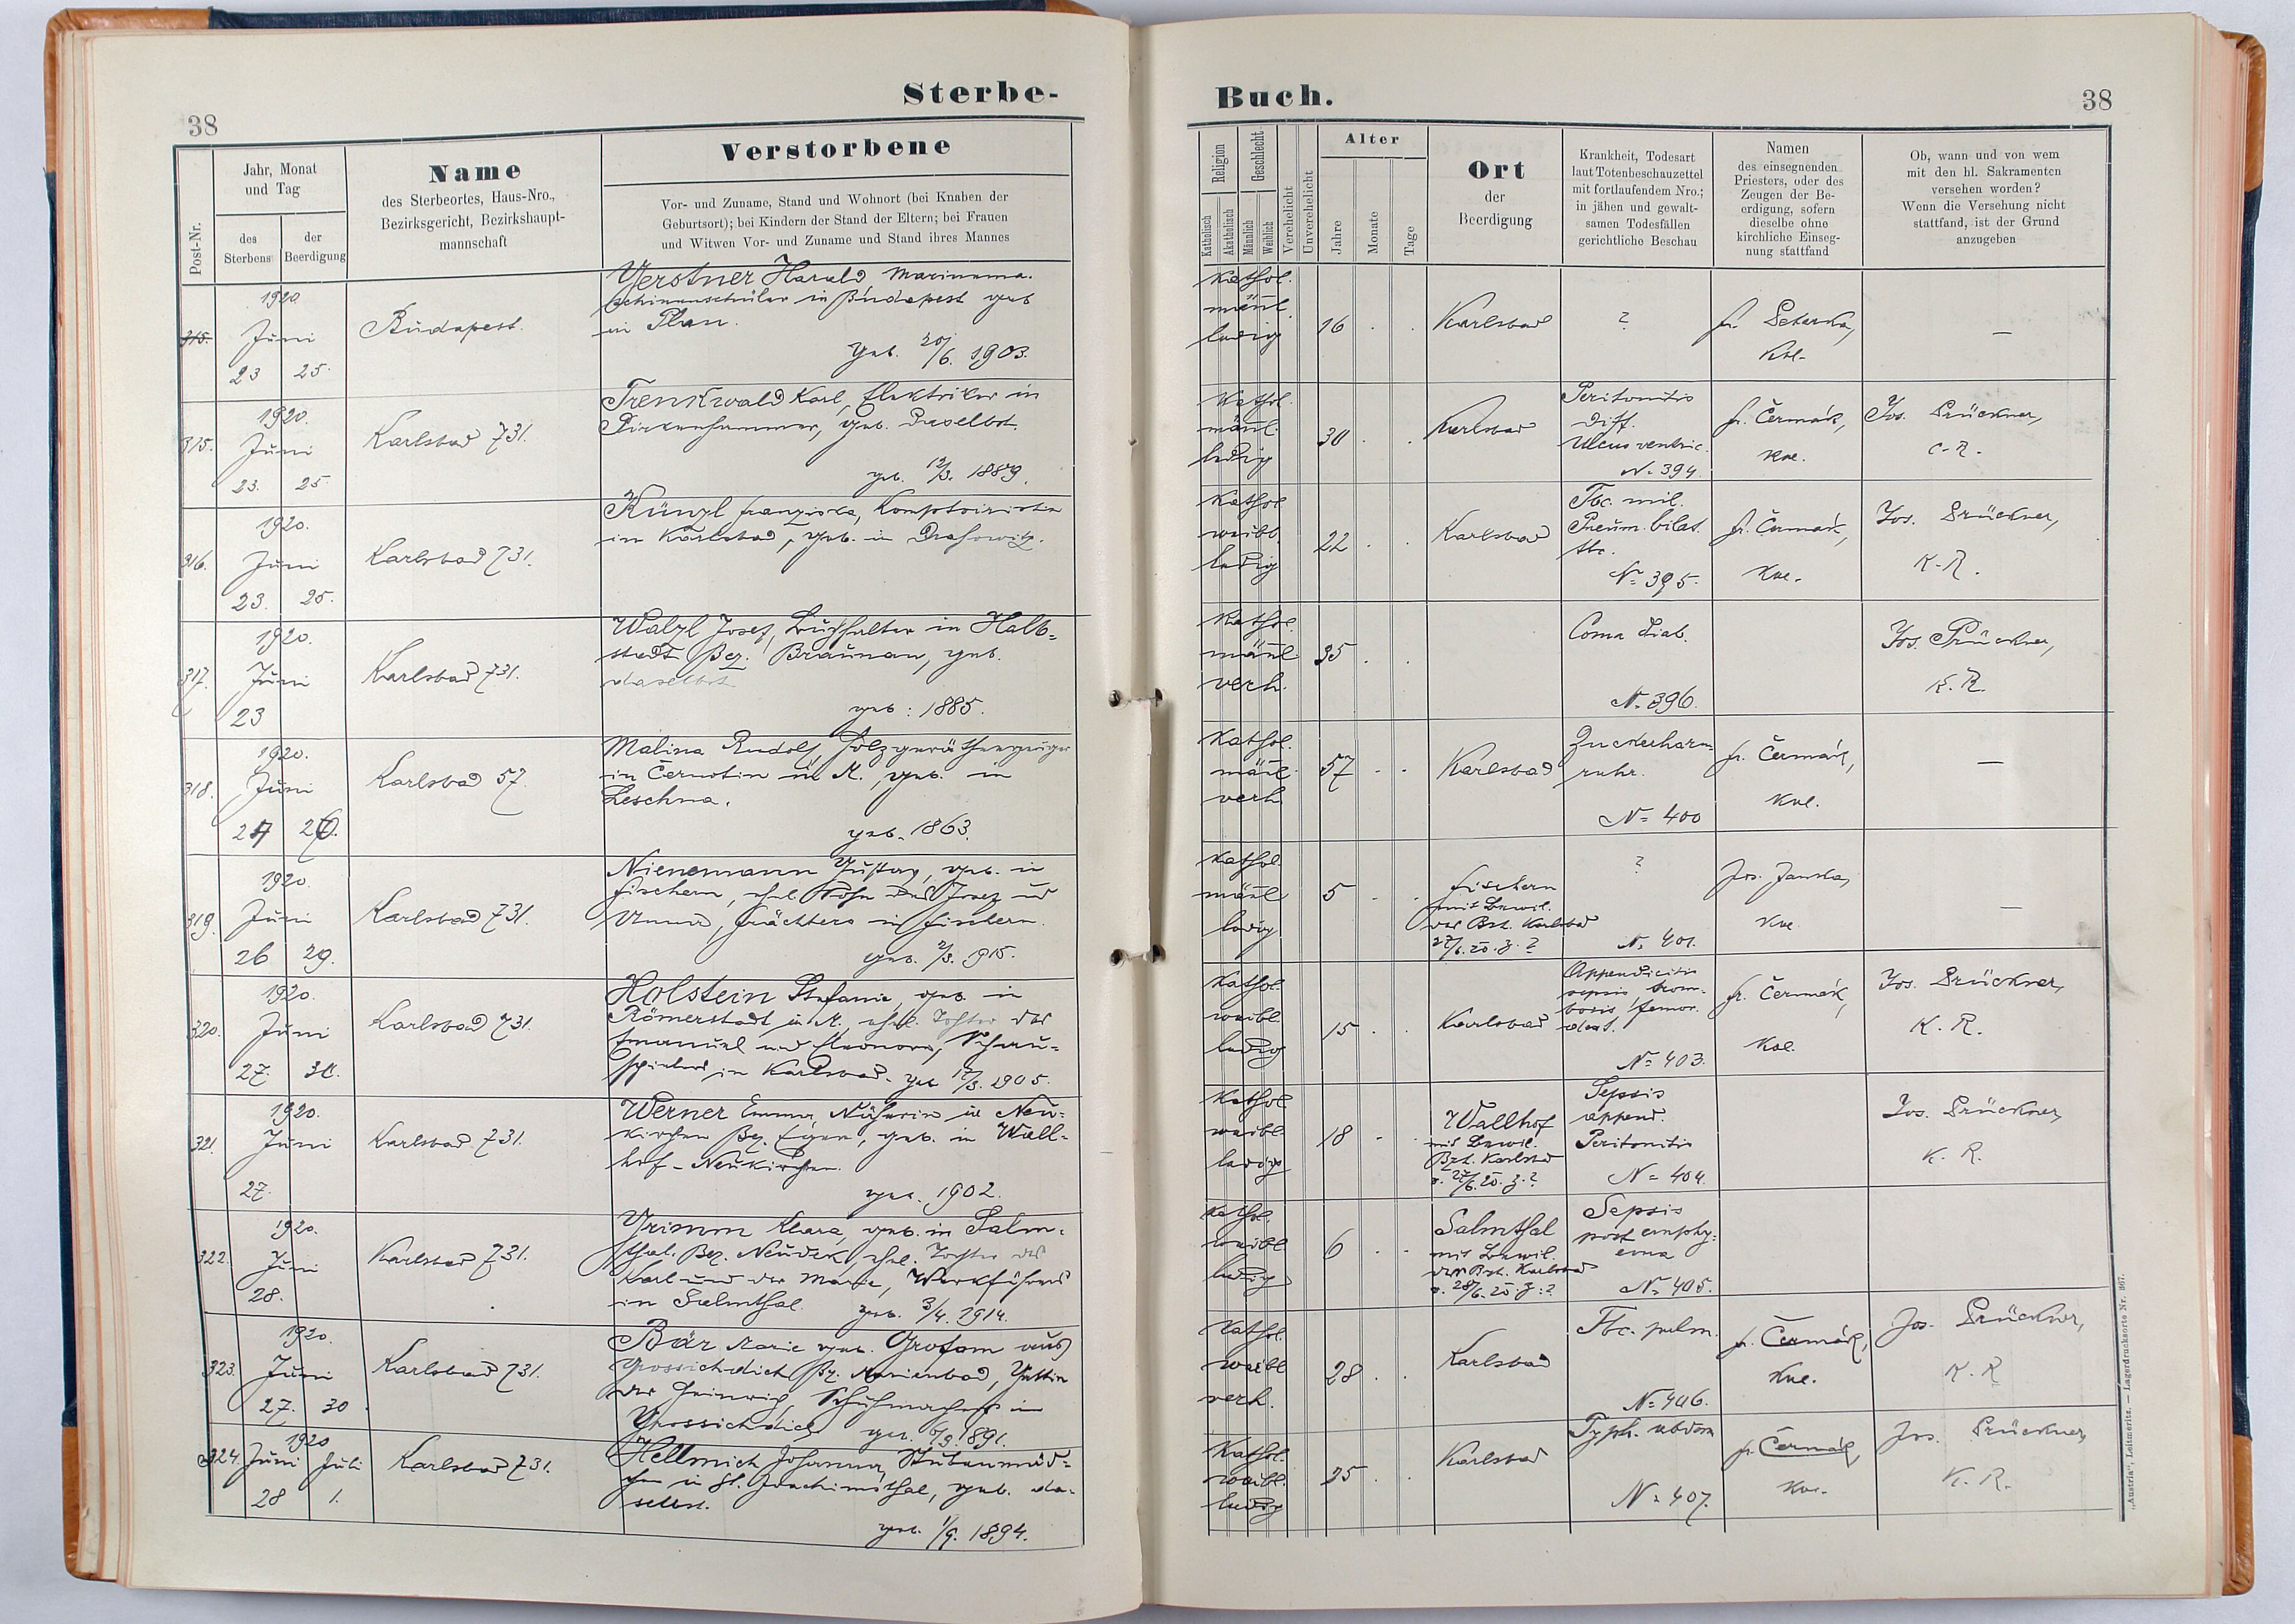 Sterbe-
38
Post-Nr.
Jahr, Monat
und Tag
des
Sterbens
der
Beerdigung
Name
des Sterbeortes, Haus-Nro.,
Bezirksgericht, Bezirkshaupt-
mannschaft
Verstorbene
Vor- und Zuname, Stand und Wohnort (bei Knaben der
Geburtsort); bei Kindern der Stand der Eltern; bei Frauen
und Witwen Vor- und Zuname und Stand ihres Mannes
315.
1920.
Juni
23 25.
Budapest.
Gerstner Harald Marinema-
schinenschüler in Budapest geb
in Plan.
Geb. 20/6. 1903.
315.
1920.
Juni
23. 25.
Karlsbad 731.
Trenkwald Karl, Elektriker in
Pirkenhammer, geb. daselbst.
geb. 12/3. 1889.
316.
1920.
Juni
23. 25.
Karlsbad 731.
Künzl Franziska, Komptoiristin
in Karlsbad, geb. in Drahowitz.
317.
1920.
Juni
23
Karlsbad 731.
Walzl Josef, Buchhalter in Halb-
stadt Bez. Braunau, geb.
daselbst
geb: 1885.
318.
1920.
Juni
Karlsbad 57.
Malina Rudolf Holzgeräthe
in Černotin in M., geb. in
Leschna.
geb. 1863.
319.
1920.
Juni
26 29.
Karlsbad 731.
Nienemann Gustav, geb. in
Fischern, ehel Sohn des Josef und
in Fischern.
geb. 2/3. 1915.
320.
1920.
Juni
27. 30.
Karlsbad 731.
Holstein Stefanie, geb. in
Römerstadt in M., ehel. Tochter des
Emanuel und Eleonora, Schau-
spielers in Karlsbad. geb 17/3. 1905.
321.
1920.
Juni
27.
Karlsbad 731.
Werner Emma, Näherin in Neu-
kirchen Bez. Eger, geb. in Wall-
hof-Neukirchen.
geb. 1902.
322.
1920.
Juni
28.
Karlsbad 731.
Grimm Klara, geb. in Salm-
thal. Bez. Neudek, ehel. Tochter des
Karl und der Marie, Werkführers
in Salmthal. geb. 3/4. 1914.
323.
1920.
Juni
27. 30
Karlsbad 731.
Bär Marie geb. Grofam aus
Grossichdich Bz. Marienbad, Gattin
des Heinrich, Schuhmachers in
Grossichdich geb. 6/9. 1891.
324.
1920
Juni Juli
28 1.
Karlsbad 731.
Hellmich Johanna, Stubenmäd-
chen in St. Joachimsthal, geb. da-
selbst.
geb. 1/9. 1894.
Buch.
38
Religion
Katholisch
Akatholisch
Geschlecht
Männlich
Weiblich
Verehelicht
Unverehelicht
Alter
Jahre
Monate
Tage
Ort
der
Beerdigung
Krankheit, Todesart
laut Totenbeschauzettel
mit fortlaufendem Nro.;
in jähen und gewalt-
samen Todesfällen
gerichtliche Beschau
Namen
des einsegnenden
Priesters, oder des
Zeugen der Be-
erdigung, sofern
dieselbe ohne
kirchliche Einseg-
nung stattfand
Ob, wann und von wem
mit den hl. Sakramenten
versehen worden?
Wenn die Versehung nicht
stattfand, ist der Grund
anzugeben
Kathol.
männl.
ledig
16 . .
Karlsbad
?
fr.
—
Kathol.
männl.
ledig
30 . .
Karlsbad
Peritonitis
diff.
Ulcus ventric.
N. 394.
fr. Čermák,
Jos. Prückner,
C.R.
Kathol
weibl.
ledig
22 . .
Karlsbad
Tbc. mil.
Pneum. bilat.
tbc.
No 395.
fr. Čermák,
Jos. Prückner,
K.R.
Kathol.
männl.
verh.
35 . .
Coma Diab.
N. 396.
Jos. Prückner,
K.R.
Kathol.
männl.
verh
57 . .
Karlsbad
Zuckerharn-
ruhr.
No 400
fr. Čermák,
—
Kathol.
männl
ledig
5 . .
Fischern
mit Bewil.
der Bzh. Karlsbad
27/6. 20. Z. ?
?
N. 401.
Jos. Janka,
—
Kathol.
weibl.
ledig
15 . .
Karlsbad
Appendicitis
sepsis trom-
bosis femor.
No 403.
fr. Čermák,
Jos. Prückner,
K.R.
Kathol
weibl.
ledig
18 .
Wallhof
mit Bewil.
Bzh. Karlsbad
v. 27/6. 20. Z. ?
Sepsis
append.
Peritonitis
No 404.
Jos. Prückner,
K.R.
Kathol.
weibl
ledig
6 . .
Salmthal
mit Bewil.
der Bzh. Karlsbad
v. 28/6. 20 Z: ?
Sepsis
post emphy-
ema
No 405.
Kathol.
weibl
verh.
28 . .
Karlsbad
Tbc. pulm.
No 406.
fr. Čermák,
Jos. Prückner,
K.R
Kathol.
weibl.
ledig
25 . .
Karlsbad
Typh. abdom
No 407.
fr. Čermák,
Jos. Prückner,
K.R.
„Austria“, Leitmeritz. — Lagerdrucksorte Nr. 367.